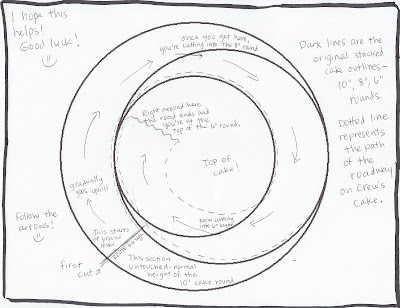 I hope this
helps!
Good luck!
once you get here,
you're cutting into the 8" round
Dark lines are the
original stacked
cake outlines-
10", 8", 6"
rounds.
Dotted line
represents
the path
of the
roadway
on Crew's
cake.
Right around here
the road ends and
you're at the
top of the 6" round.
Top of
cake!
gradually
goes uphill
Now cutting
into 6" layer
follow the
arrows!
This starts
at ground
level
first
cut
This section
untouched-normal
height of the
10" cake round